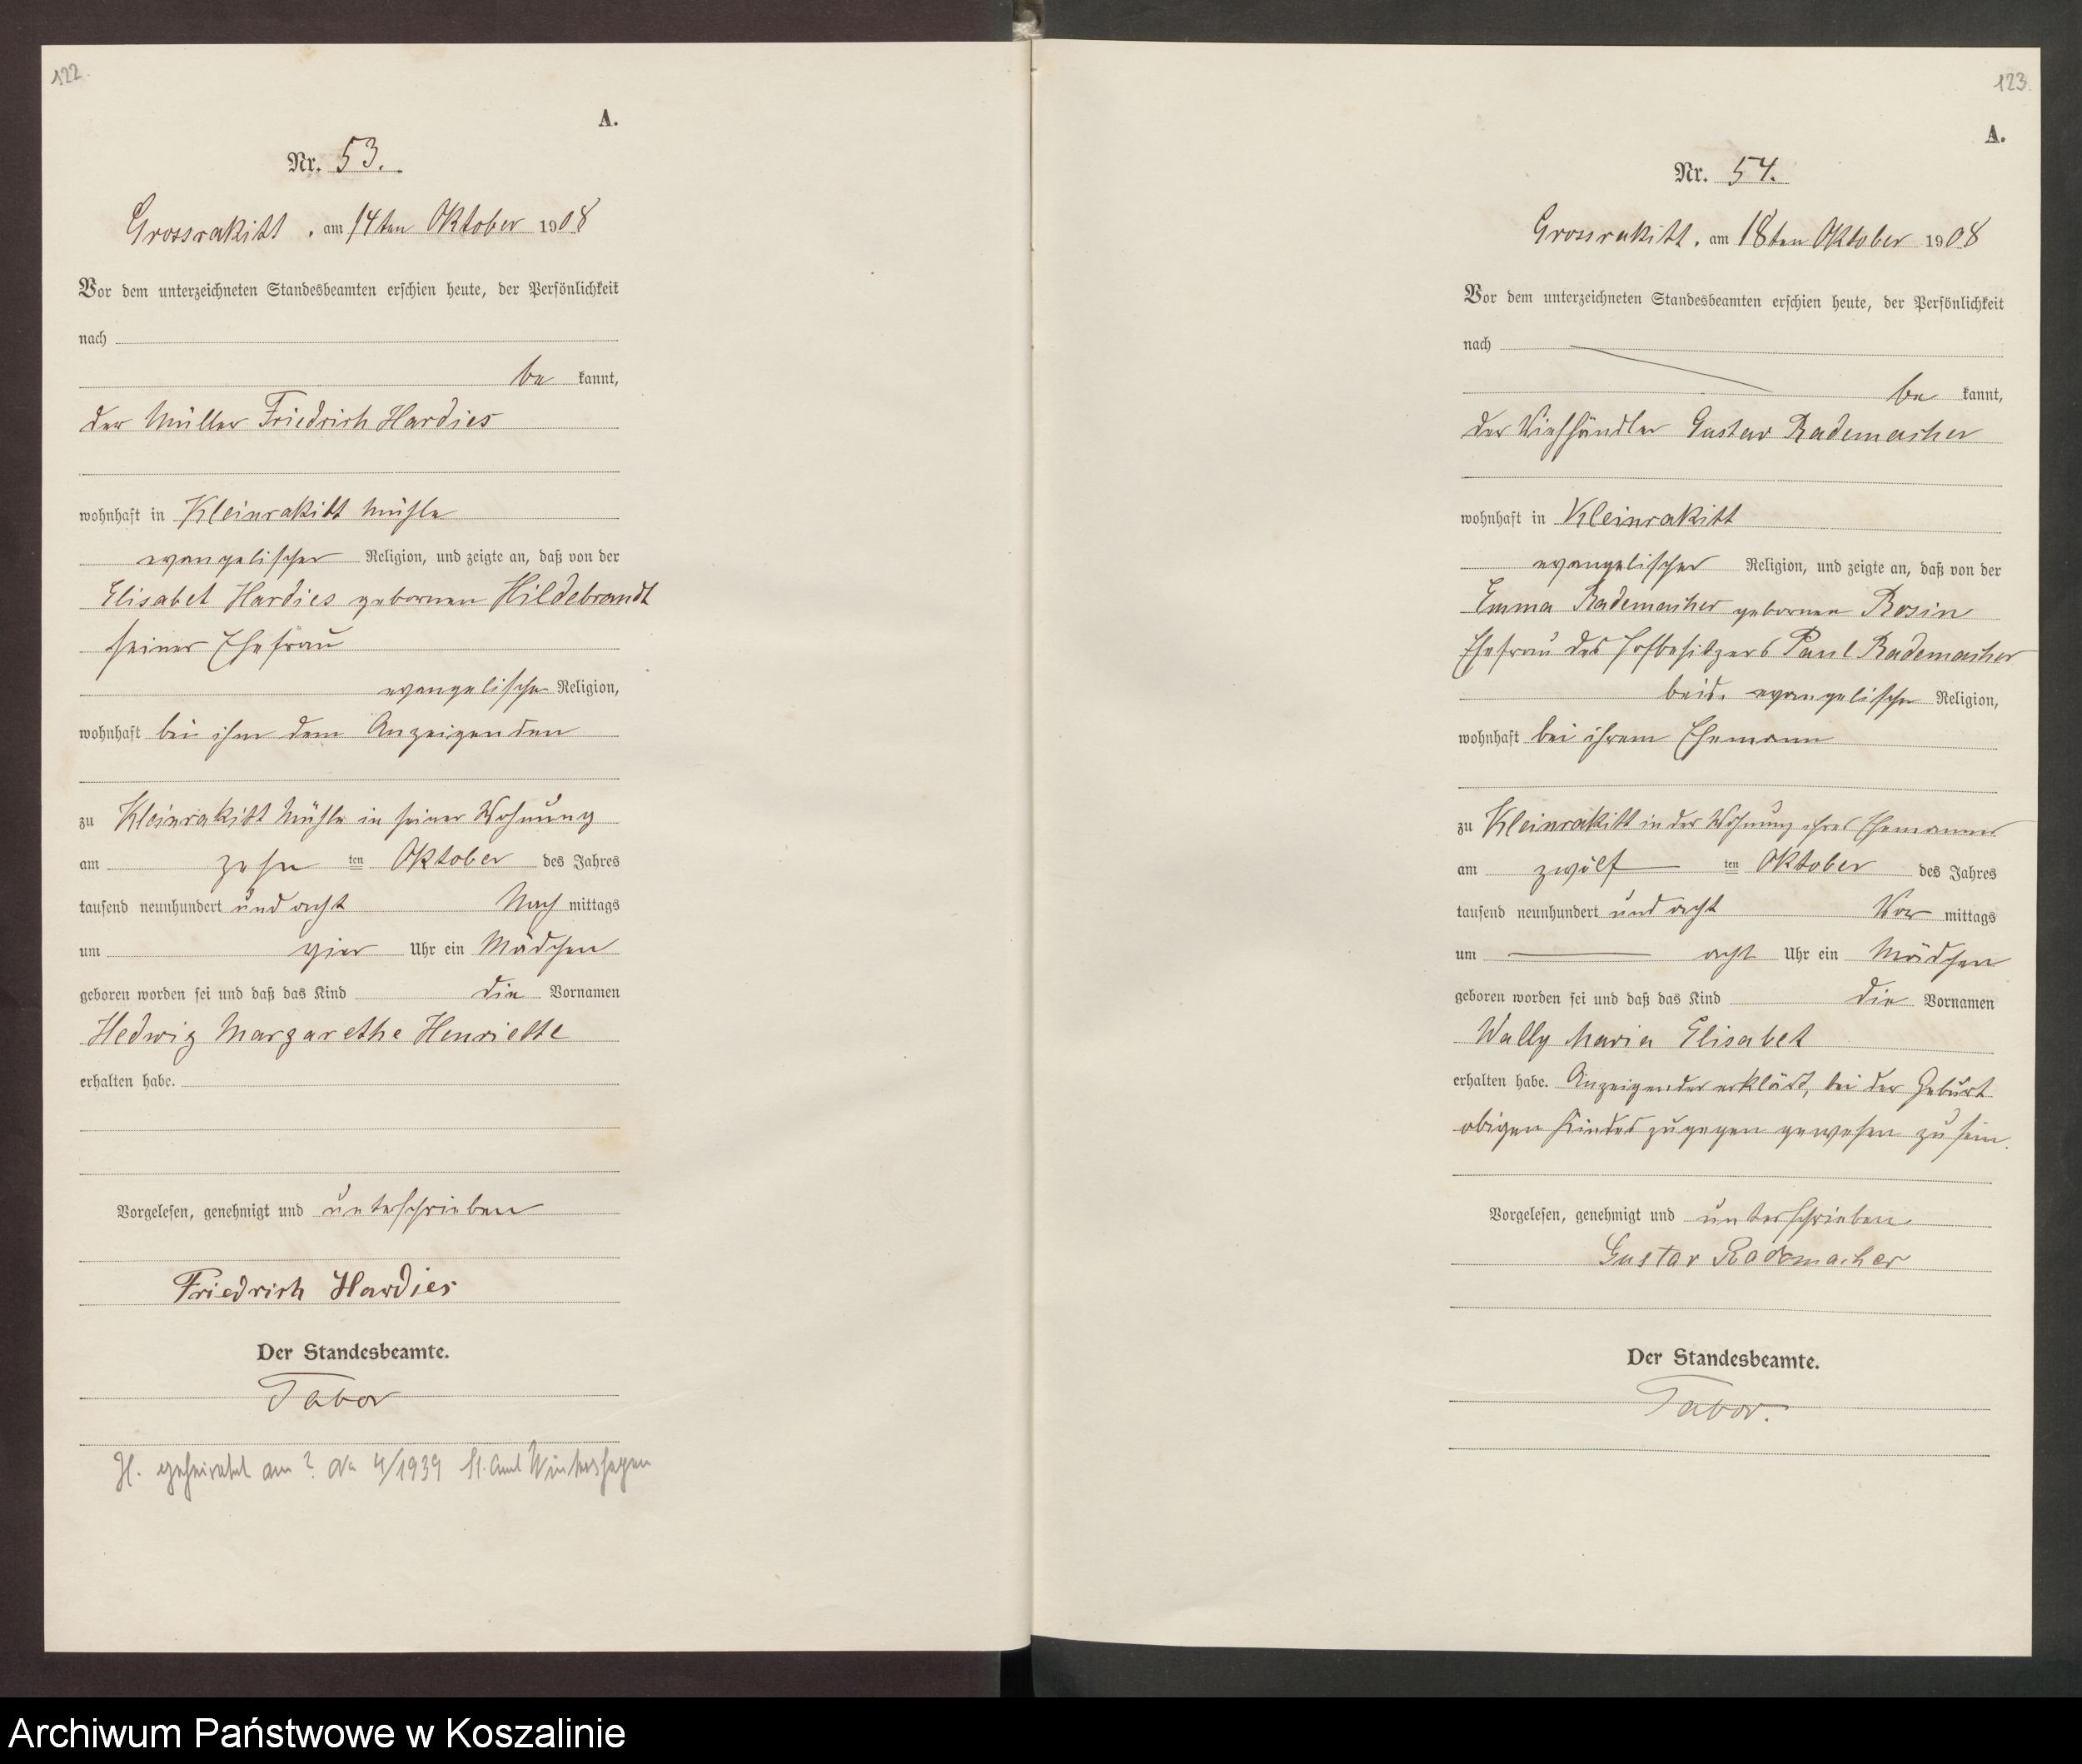 122.
A.
Nr. 53.
Grossrakitt, am 14ten Oktober 1908
Vor dem unterzeichneten Standesbeamten erschien heute, der Persönlichkeit
nach
be kannt,
der Müller Friedrich Hardies
wohnhaft in Kleinrakitt Mühle
evangelischer Religion, und zeigte an, daß von der
Elisabet Hardies gebornen Hildebrandt
seiner Ehefrau
evangelischer Religion,
wohnhaft bei ihm dem Anzeigenden
zu Kleinrakitt Mühle in seiner Wohnung
am zehn ten Oktober des Jahres
tausend neunhundert und acht Nach mittags
um vier Uhr ein Mädchen
geboren worden sei und daß das Kind die Vornamen
Hedwig Margarethe Henriette
erhalten habe.
Vorgelesen, genehmigt und unterschrieben
Friedrich Hardies
Der Standesbeamte.
Tabor
H. geheiratet am ? No 4/1939 St. Amt Wintershagen
123.
A.
Nr. 54.
Grossrakitt, am 18ten Oktober 1908
Vor dem unterzeichneten Standesbeamten erschien heute, der Persönlichkeit
nach
be kannt,
der Viehhändler Gustav Rademacher
wohnhaft in Kleinrakitt
evangelischer Religion, und zeigte an, daß von der
Emma Rademacher gebornen Rosin
Ehefrau des Hofbesitzers Paul Rademacher
beide evangelischer Religion,
wohnhaft bei ihrem Ehemann
zu Kleinrakitt in der Wohnung ihres Ehemannes
am zwölf ten Oktober des Jahres
tausend neunhundert und acht Vor mittags
um acht Uhr ein Mädchen
geboren worden sei und daß das Kind die Vornamen
Wally Maria Elisabet
erhalten habe. Anzeigender erklärt, bei der Geburt
obigen Kindes zugegen gewesen zu sein.
Vorgelesen, genehmigt und unterschrieben
Gustav Rademacher
Der Standesbeamte.
Tabor.
Archiwum Państwowe w Koszalinie